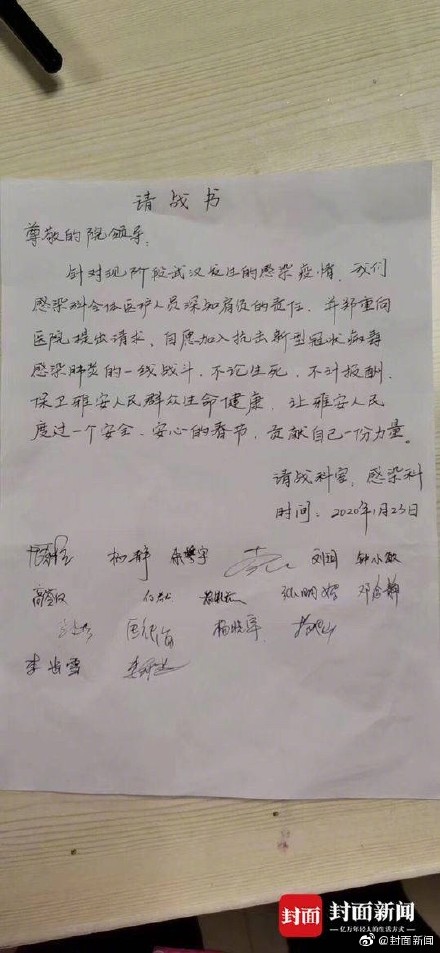 请战书
尊敬的院领导：
针对现阶段武汉发生的感染疫情，我们
感染科全体医护人员深知肩负的责任，并郑重向
医院提出请求，自愿加入抗击新型冠状病毒
感染肺炎的一线战斗，不论生死，不计报酬，
保卫雅安人民群众生命健康，让雅安人民
度过一个安全、安心的春节，贡献自己一份力量。
请战科室：感染科
时间：2020年1月23日
杨静 刘国 钟小敏
杨晓军
李岩雪
封面 封面新闻
亿万年轻人的生活方式
@封面新闻